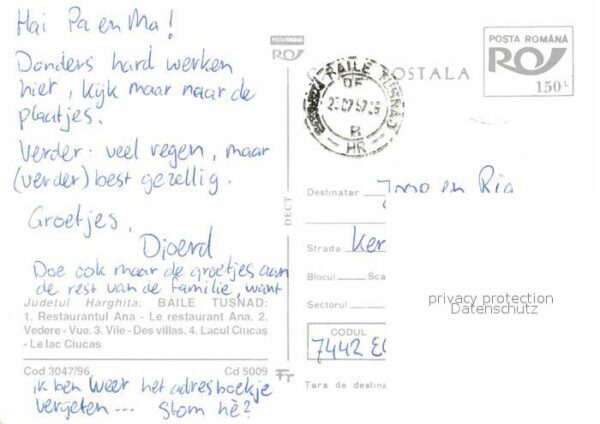 Hai Pa en Ma!
Donders hard werken
hier, kijk maar naar de
plaatjes.
Verder: veel regen, maar
(verder) best gezellig.
Groetjes,
Djoerd
Doe ook maar de groetjes aan
de rest van de familie, want
Județul Harghita: BĂILE TUȘNAD:
1. Restaurantul Ana - Le restaurant Ana. 2.
Vedere - Vue. 3. Vile - Des villas. 4. Lacul Ciucas
- Le lac Ciucas
Cod 3047/96 Cd 5009
ik ben weer het adresboekje
vergeten --- Stom hè?
POSTA ROMANA
DECT
CARTE POSTALA
BAILE TUSNAD
HR
POSTA ROMÂNĂ
150 L
Destinatar Jmo en Ria
Strada Ker
Blocul Sca
Sectorul
CODUL
7442
Tara de destina
privacy protection
Datenschutz